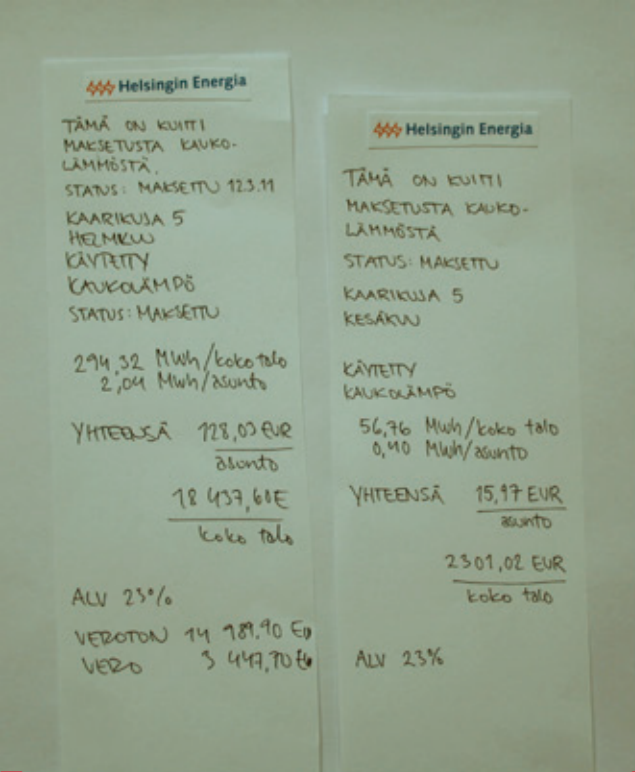 Helsingin Energia
TÄMÄ ON KUITTI
MAKSETUSTA KAUKO-
LÄMMÖSTÄ.
STATUS: MAKSETTU 12.3.11
KAARIKUJA 5
HELMIKUU
KÄYTETTY
KAUKOLÄMPÖ
STATUS: MAKSETTU
294,32 MWh/koko talo
2,04 MWh/asunto
YHTEENSÄ 128,03 EUR
asunto
18 437,60 E
koko talo
ALV 23%
VEROTON 14 989.90 EU
VERO 3 447,70 EU
Helsingin Energia
TÄMÄ ON KUITTI
MAKSETUSTA KAUKO-
LÄMMÖSTÄ
STATUS: MAKSETTU
KAARIKUJA 5
KESÄKUU
KÄYTETTY
KAUKOLÄMPÖ
56,76 MWh/koko talo
0,40 MWh/asunto
YHTEENSÄ 15,97 EUR
asunto
2301,02 EUR
koko talo
ALV 23%